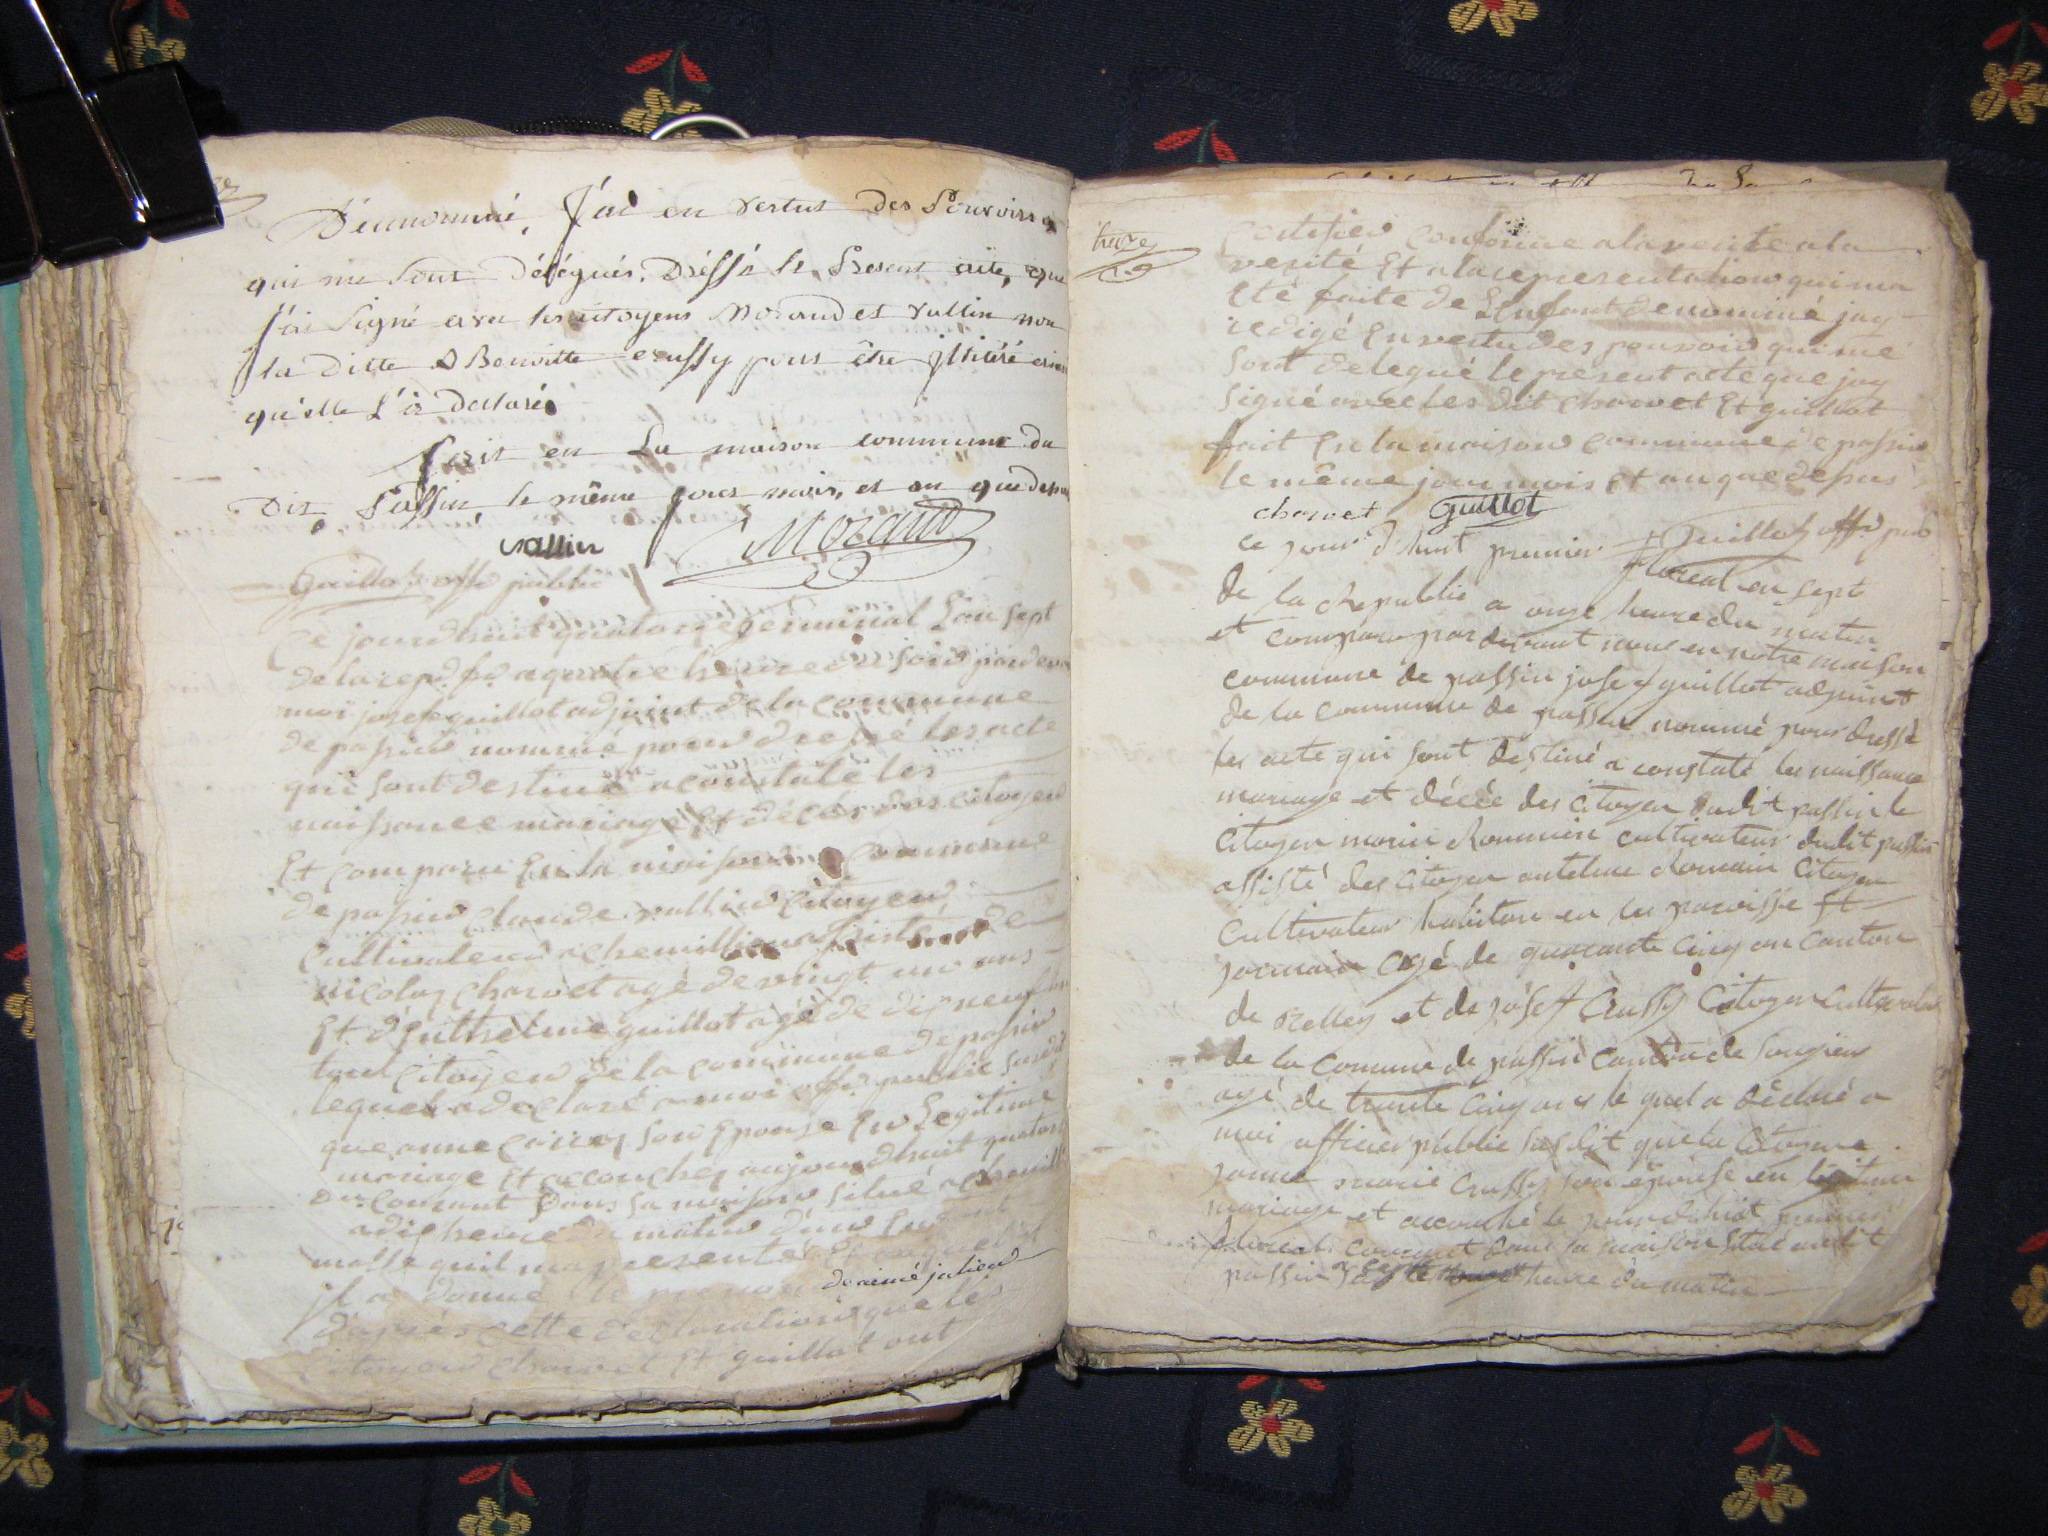 Dénommé, J'ai en vertus des Pouvoirs
qui me sont délégués, Dréssé le Présent acte, que
J'ai signé avec les citoyens Morand et vallin non
la ditte Benoitte crussy pour être illitéré
qu'elle l'a Déclaré
fait en La maison commune du
Dit Passin, le même jour mois, et an que dessus
vallin Morand
Guillot offr public
Ce jourdhuit quatorze germinal Lan sept
de la rep. fr. a quatre heure du soir pardevant
moi josef guillot adjoint de la commune
de passin nommé pour dressé les acte
qui sont destiné a constaté les
naissance mariage Et décés des citoyen
Et comparu En la maison commune
de passin claude vallin citoyen
Cultivateur a chemillieu assisté de
nicolas charvet agé de vingt un ans
Et d'Enthelme guillot agé de dix neuf
tout citoyen de la commune de passin
lequel a declaré a moi offr public susdit
que anne son Epouse En Legitime
mariage Et accouchez aujourdhuit quatorze
du courant dans sa maison situé a
a dix heure du matin d'un Enfant
malle quil ma presenté Et auquel
jl a donné le prenom de aimé julien
D'après cette declaration que les
citoyen charvet Et guillot ont
treize
certifier conforme a la verite a la
verité Et a la representation qui ma
Eté faite de L'enfant denommé jay
redigé En vertu des pouvoir qui me
sont delegué le present acte que jay
signé avec les dit charvet Et guillot
fait En la maison commune de passin
le même jour mois Et an que desus
charvet Guillot
Guillot offr pub
ce jourd'huit premier floreal en sept
de la Republie a onze heure du matin
et comparu par devant nous en notre maison
commune de passin josef guillot adjoint
de la commune de passin nommé pour dressé
les acte qui sont destiné a constaté les naissance
mariage et décée des citoyen dudit passin le
citoyen marin Roumain cultivateur dudit passin
assisté des citoyen antelme Romain citoyen
cultivateur habitan en la paroisse St
jarmain agé de quarante cinq an canton
de Belley et de josef Crussy citoyen cultivateur
de la comune de passin canton de Songieu
agé de trante cinq ans le quel a déclaré a
moi officier public susdit que la citoyene
janne marie Crussy son épouse en legitime
mariage et accouché le jourdhuit premier
floreal courant dans sa maison situé audit
passin heure du matin